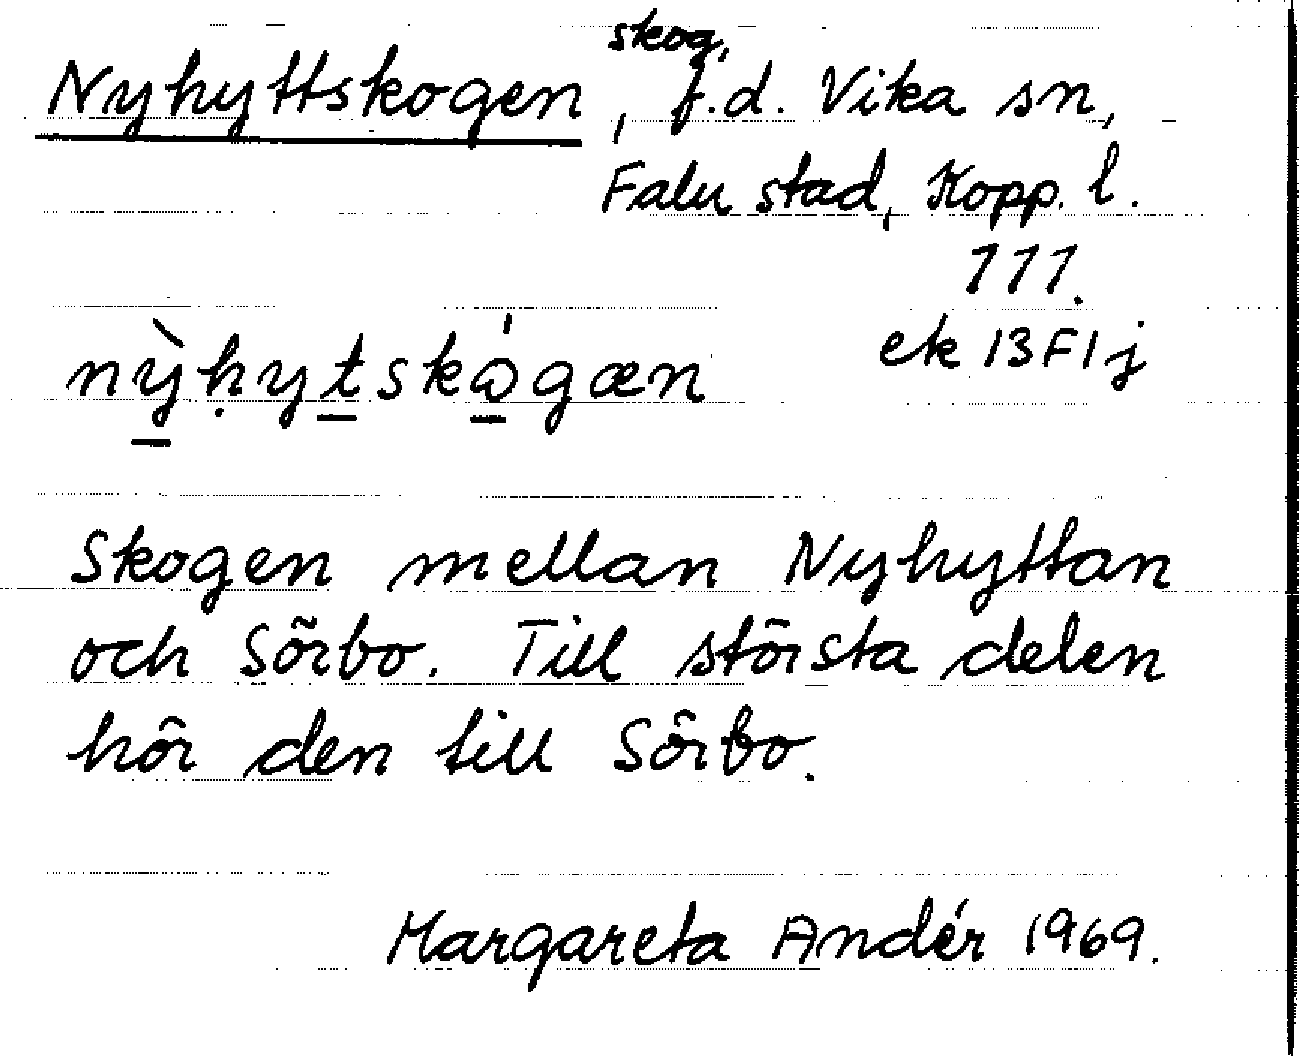 Nyhyttskogen, skog, f.d. Vika sn,
Falu stad, Kopp. l.
111.
ek 13F1j
nỳ̠ḥyt̠skɷ̠́gæn
Skogen mellan Nyhyttan
och Sörbo. Till största delen
hör den till Sörbo.
Margareta Andér 1969.